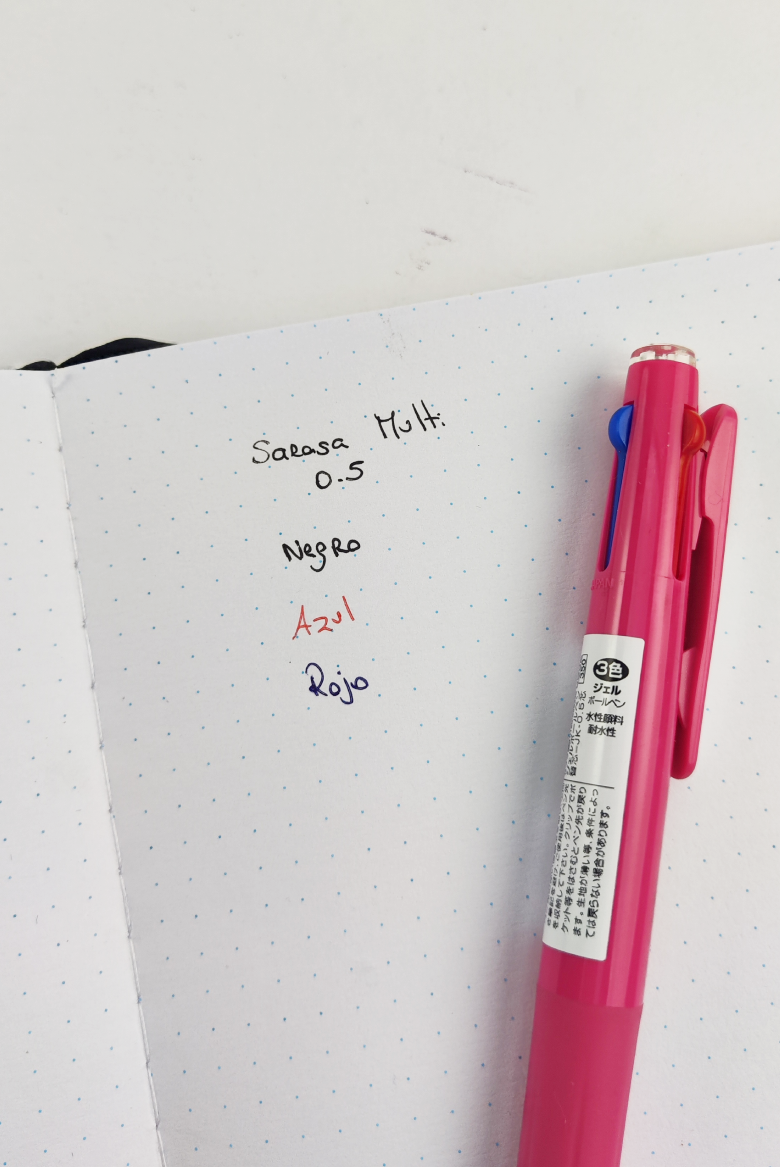 Sarasa Multi
0.5
Negro
Azul
Rojo
3色
ジェル
ボールペン
水性顔料
耐水性
を収納して下さい。クリップでポ
ケット等をはさむとペン先が戻り
ます。生地が薄い等、条件によっ
ては戻らない場合があります。